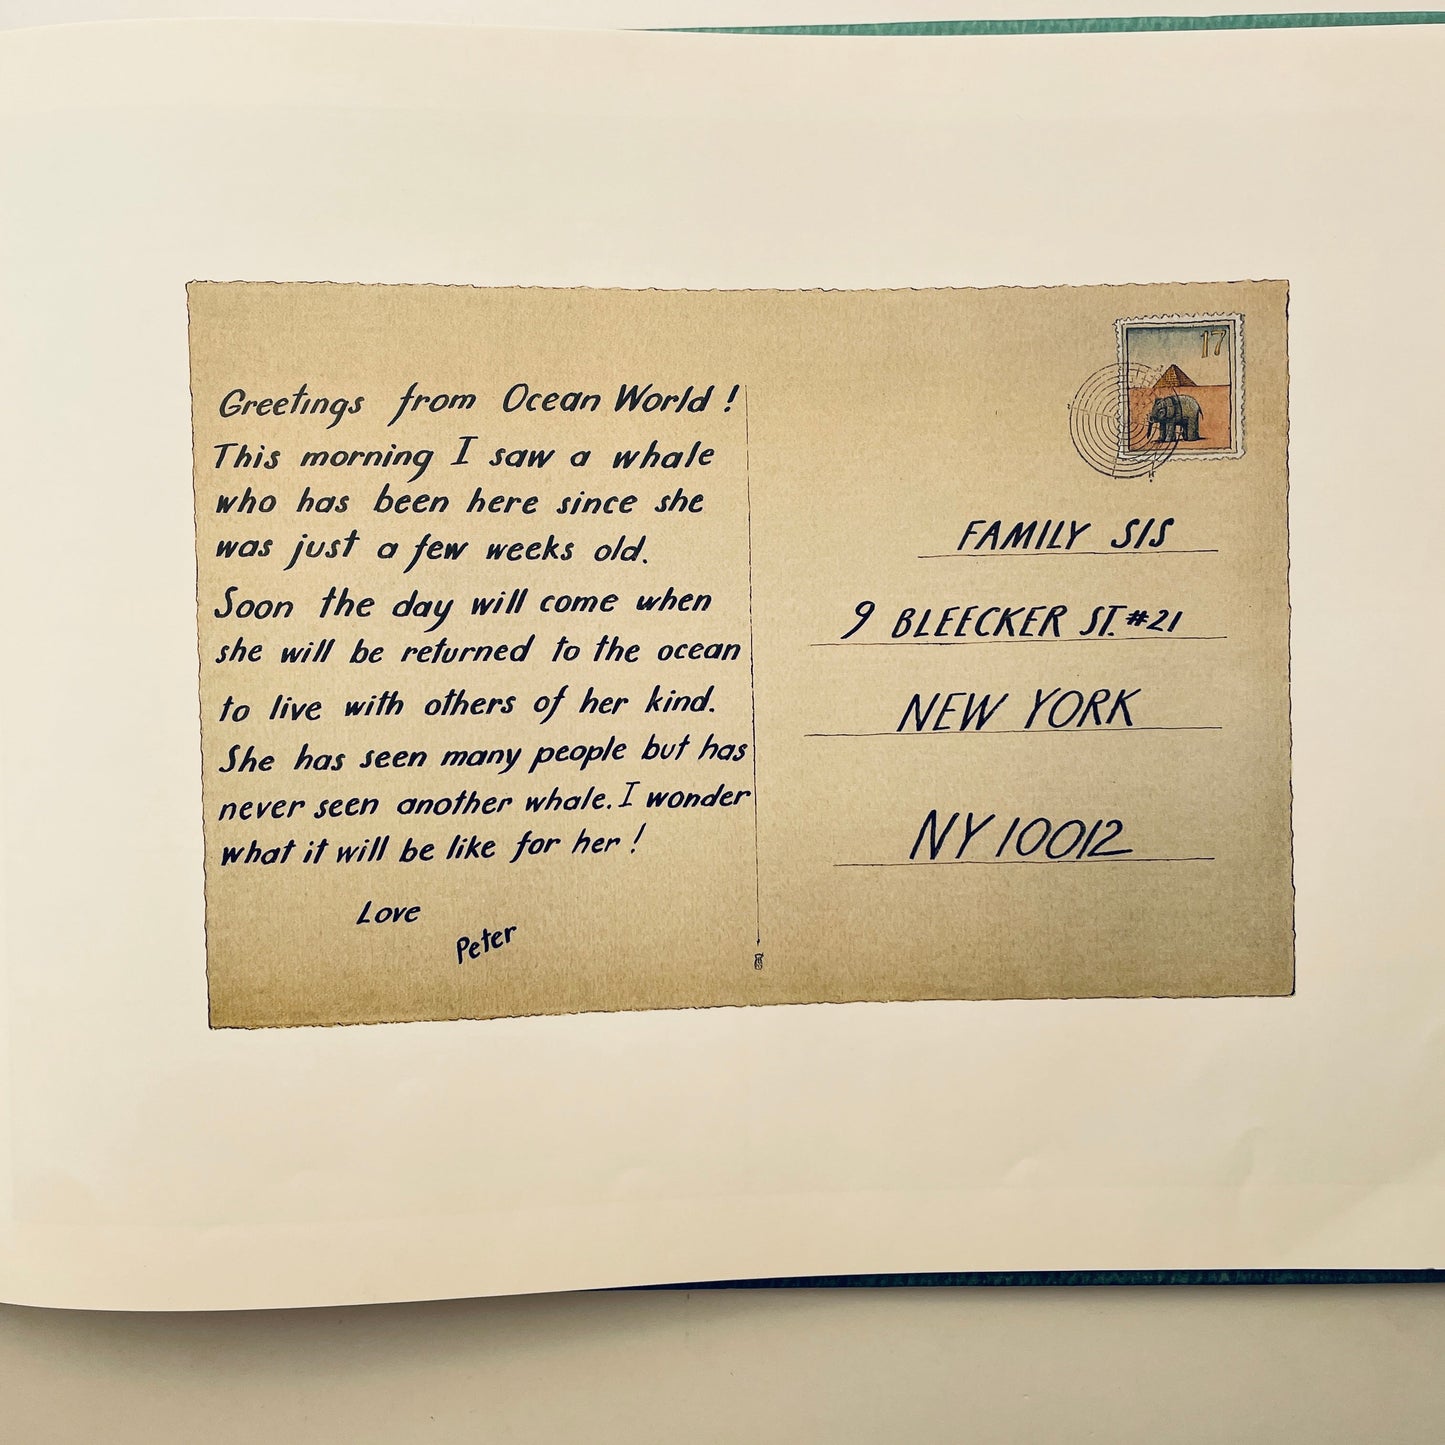 Greetings from Ocean World!
This morning I saw a whale
who has been here since she
was just a few weeks old.
Soon the day will come when
she will be returned to the ocean
to live with others of her kind.
She has seen many people but has
never seen another whale. I wonder
what it will be like for her!
Love
Peter
17
FAMILY SIS
9 BLEECKER ST. #21
NEW YORK
NY 10012